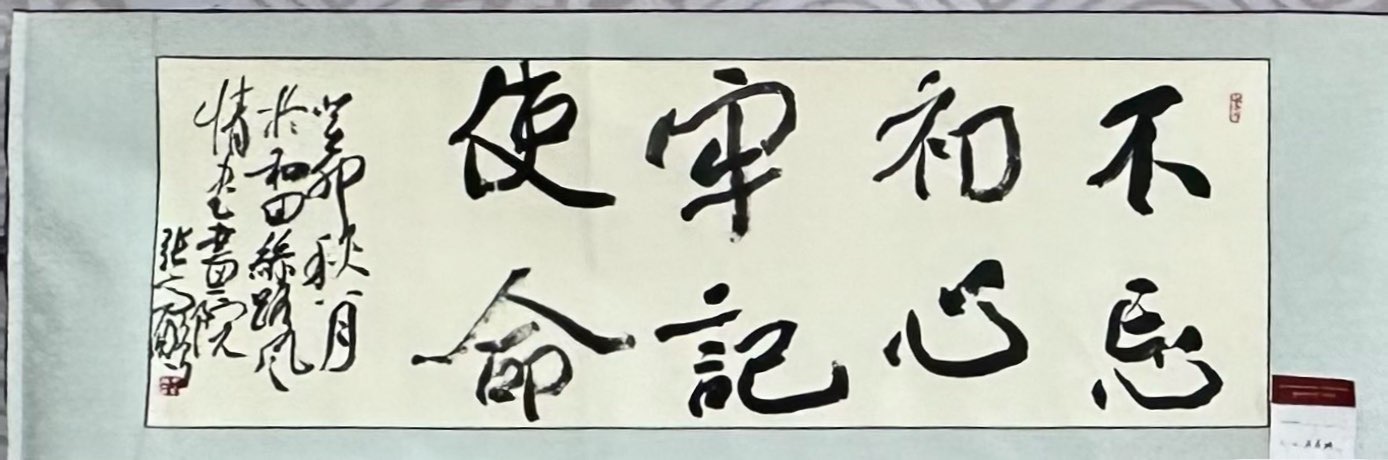 不忘
初心
牢記
使命
癸卯秋八月
於和田絲路風
情書畫院
張